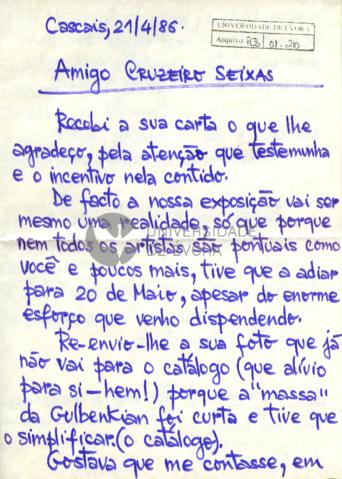 Cascais, 21/4/86.
UNIVERSIDADE DE ÉVORA
Arquivo FCS 01-210
Amigo CRUZEIRO SEIXAS
Recebi a sua carta o que lhe
agradeço, pela atenção que testemunha
e o incentivo nela contido.
De facto a nossa exposição vai ser
mesmo uma realidade, só que porque
nem todos os artistas são pontuais como
você e poucos mais, tive que a adiar
para 20 de Maio, apesar do enorme
esforço que venho dispendendo.
Re-envio-lhe a sua foto que já
não vai para o catálogo (que alívio
para si-hem!) porque a "massa"
da Gulbenkian foi curta e tive que
o simplificar. (o catálogo).
Gostava que me contasse, em
UNIVERSIDADE
DE ÉVORA